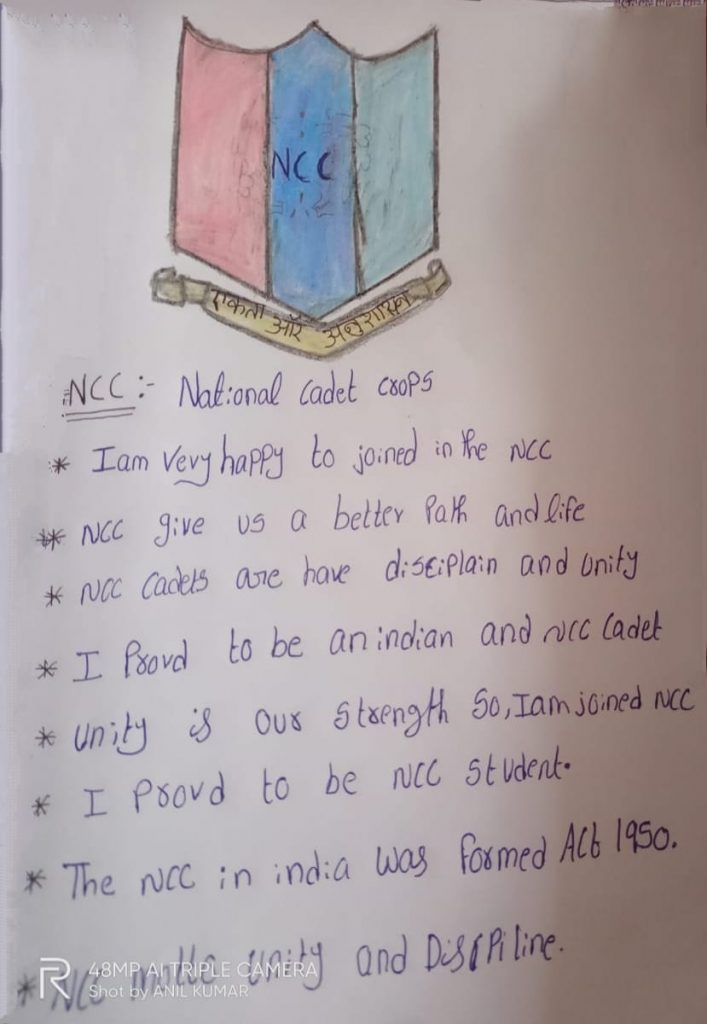 NCC
एकता और अनुशासन
NCC :- National Cadet Crops
* I am very happy to joined in the NCC
* NCC give us a better Path and life
* NCC Cadets are have disciplain and Unity
* I Proud to be an indian and NCC Cadet
* Unity is our Strength So, I am joined NCC
* I Proud to be NCC Student.
* The NCC in india was formed Act 1950.
* NCC unity and Discpiline.
48MP AI TRIPLE CAMERA
Shot by ANIL KUMAR